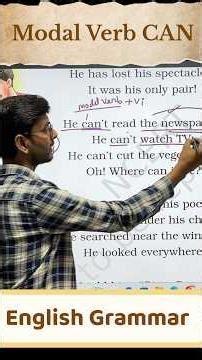 Modal Verb CAN
He has lost his spectacle
It was his only pair!
modal verb + V1
He can't read the newspa
He can't watch TV
He can't cut the veg
Oh! Where can
his poc
der his ch
e searched near the win
He looked everywhere
English Grammar